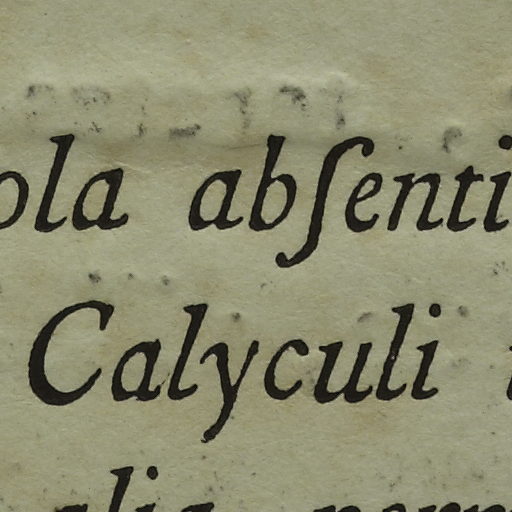 ola abſenti
Calyculi